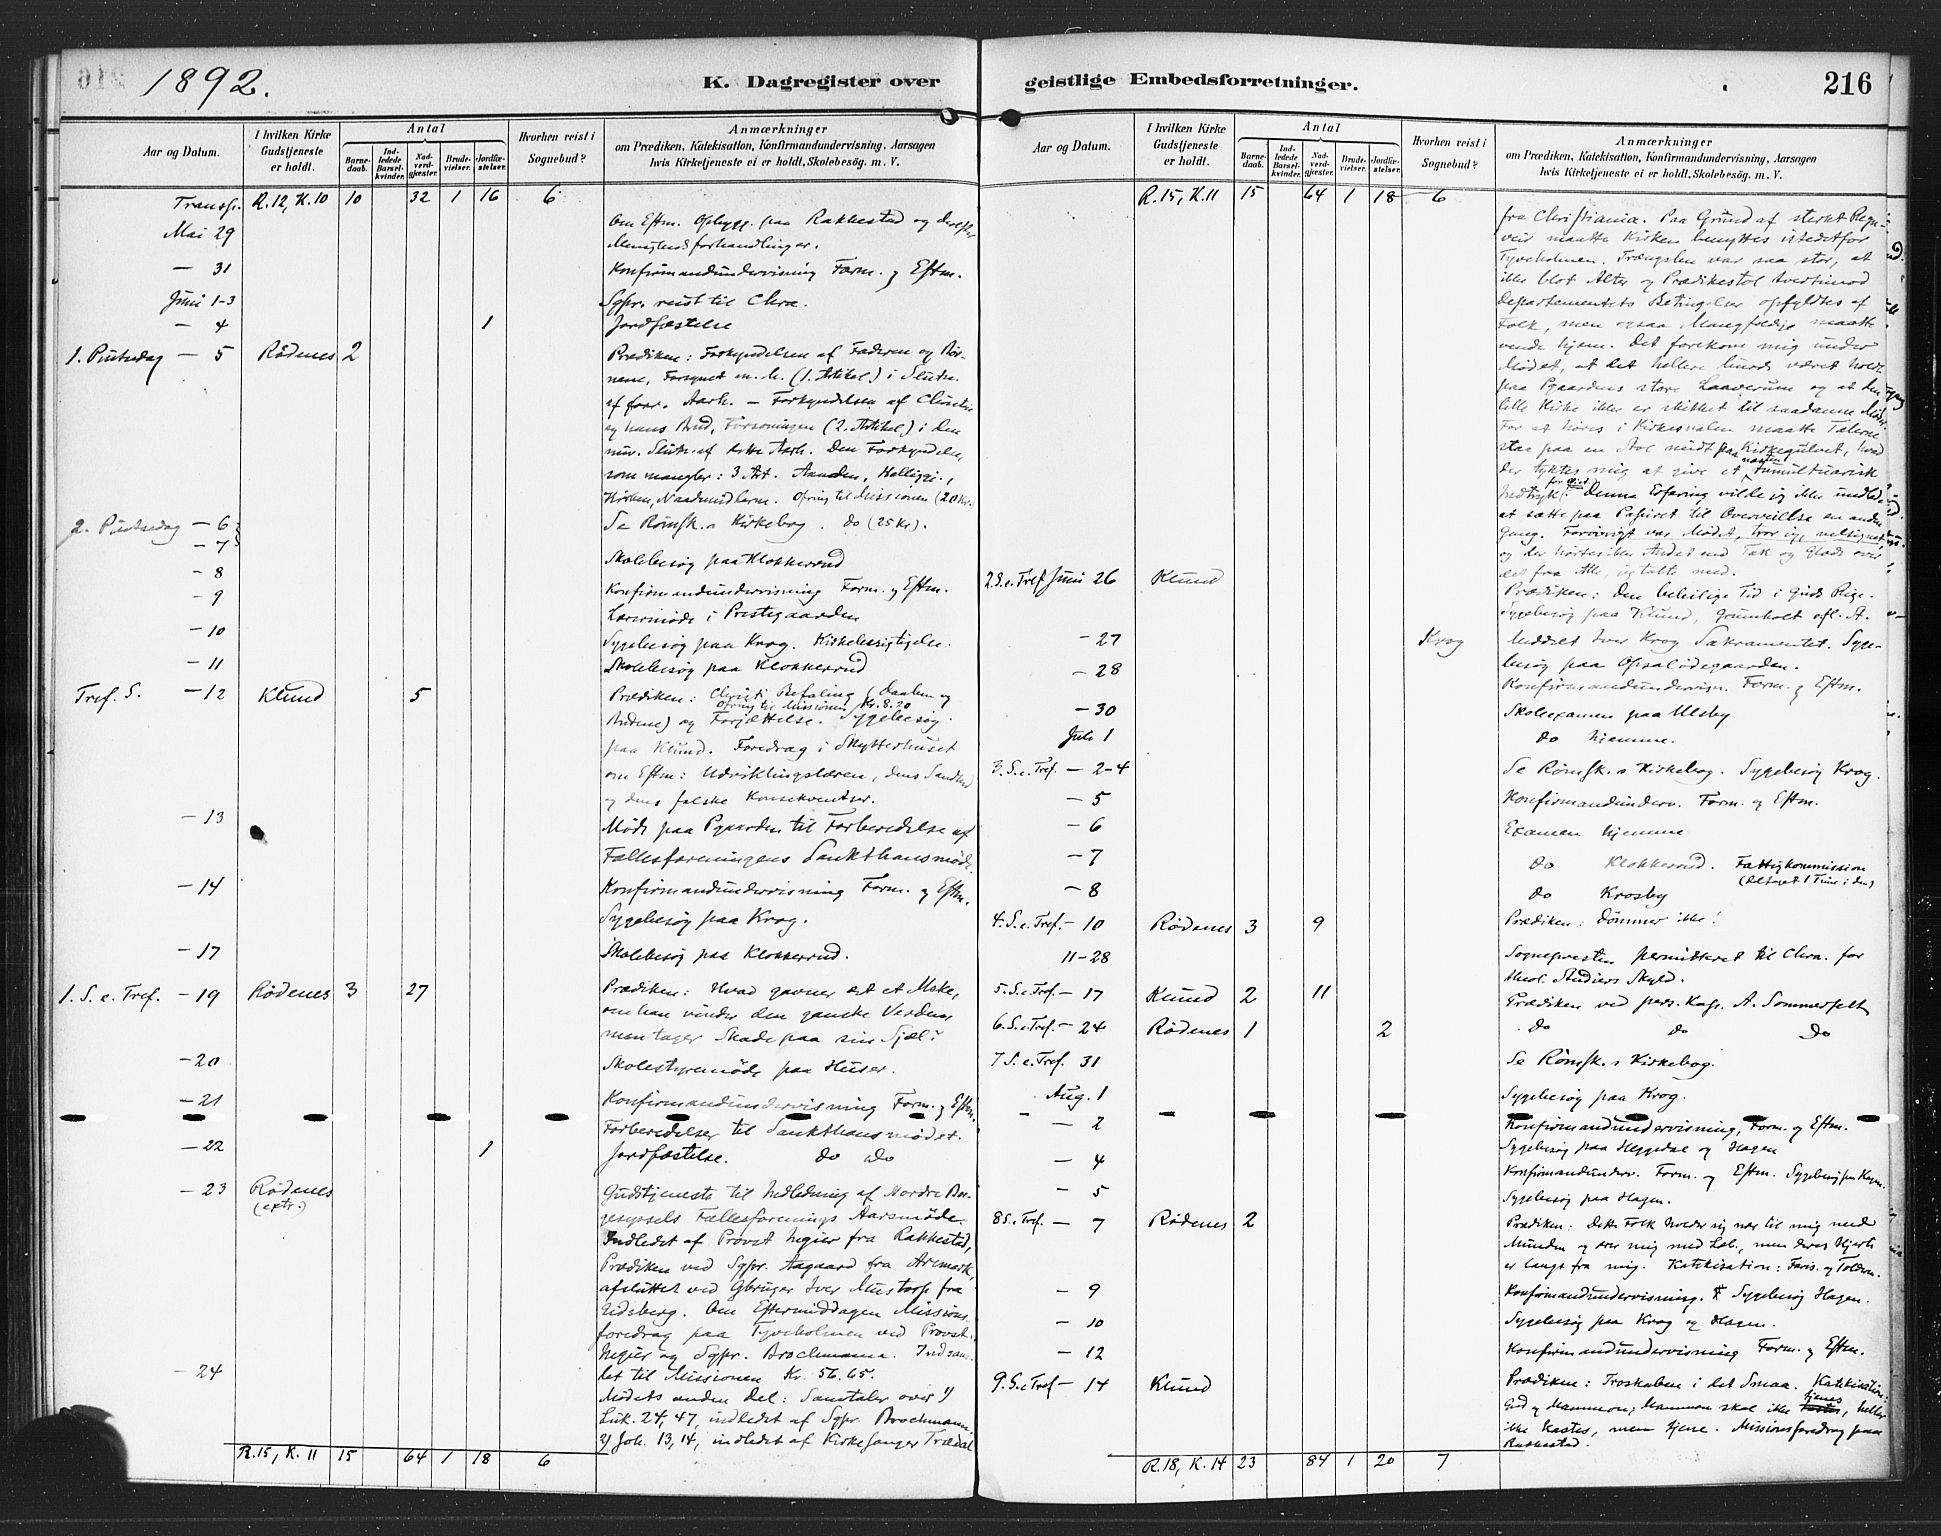 1892.
K. Dagregister over geistlige Embedsforretninger.
216
Aar og Datum.
I hvilken Kirke Gudstjeneste er holdt.
Antal
Barnedaab.
Indledede Barselkvinder.
Nadverdgjæster.
Brudevielser.
Jordfæstelser.
Hvorhen reist i Sognebud?
Anmærkninger
om Prædiken, Katekisation, Konfirmandundervisning, Aarsagen
hvis Kirketjeneste ei er holdt, Skolebesög. m. V.
Transp. R. 12, K. 10 10 32 1 16 6
Mai 29 Om Eftm. Opbygg. paa Rakkestad og derefter
Menighedsforhandlinger.
— 31 Konfirmandundervisning Form. og Eftm.
Juni 1-3 Sgpr. reist til Chra.
— 4 1 Jordfæstelse
1. Pintsedag — 5 Rödenes 2 Prædiken: Forkyndelsen af Faderen og Bör-
nene, Forsynet m. M. (1. Artikel) i Slutn.
af forr. Aarh. — Forkyndelsen af Christus
og hans Aand, Forsoningen (2. Artikel) i den
nuv. Slutn. af dette Aarh. Den Forkyndelse,
som mangler: 3 Art. Aanden, Helliggj.,
Kirken, Naademidlerne. Ofring til Missionen (20 Kr.
2. Pintsedag — 6 Se Römsk.s Kirkebog. do (25 Kr).
— 7
— 8 Skolebesög paa Klokkerud
— 9 Konfirmandundervisning Form. og Eftm.
Lærermöde i Prestegaarden
— 10 Sygebesög paa Krog. Kirkebesigtigelse.
— 11 Skolebesög paa Klokkerud
Tref. S. — 12 Klund 5 Prædiken: Christi Befaling (Daaben og
Ofring til Missionen Kr. 8.20
Ordene) og Forjættelse. Sygebesög
paa Klund. Foredrag i Skytterhuset
om Eftm: Udviklingslæren, dens Sandhed
og dens falske Konsekventser.
— 13 Möde paa Pgaarden til Forberedelse af
Fællesforeningens Sankthansmöde.
— 14 Konfirmandundervisning Form. og Eftm.
Sygebesög paa Krog.
— 17 Skolebesög paa Klokkerud.
1. S. e. Tref. — 19 Rödenes 3 27 Prædiken: Hvad gavner det et Mske,
om han vinder den ganske Verden,
men tager Skade paa sin Sjæl?
— 20 Skolestyremöde paa Huser.
— 21 Konfirmandundervisning Form. og Eftm.
Forberedelser til Sankthansmödet.
— 22 1 Jordfæstelse. do do
— 23 Rödenes (extr.) Gudstjeneste til Indledning af Nordre Bor-
gesyssels Fællesforenings Aarsmöde.
Indledet af Provst Hegier fra Rakkestad,
Prædiken ved Sgpr. Aagaard fra Aremark,
afsluttet ved Gbruger Iver Mustorp fra
Eidsberg. Om Eftermiddagen Missions-
foredrag paa Tyveholmen ved Provst
Hegier og Sgpr. Brochmann. Indsam-
let til Missionen Kr. 56.65.
— 24 Mödets anden Del: Samtaler over 1)
Luk. 24, 47, indledet af Sgpr. Brochmann
2) Joh. 13, 14, indledet af Kirkesanger Trædal
R. 15, K. 11 15 64 1 18 6
Aar og Datum.
I hvilken Kirke Gudstjeneste er holdt.
Antal
Barnedaab.
Indledede Barselkvinder.
Nadverdgjæster.
Brudevielser.
Jordfæstelser.
Hvorhen reist i Sognebud?
Anmærkninger
om Prædiken, Katekisation, Konfirmandundervisning, Aarsagen
hvis Kirketjeneste ei er holdt, Skolebesög. m. V.
R. 15, K. 11 15 64 1 18 6
fra Christiania. Paa Grund af sterkt Regn-
veir maatte Kirken benyttes istedetfor
Tyveholmen. Trængslen var saa stor, at
ikke blot Alter og Prædikestol tvertimod
Departementets Betingelser opfyldtes af
Folk, men ogsaa Mangfoldige maatte
vende hjem. Det forekom mig under
Mödet, at det hellere burde været holdt
paa Pgaardens store Laaverum og at den
lille Kirke ikke er skikket til saadanne Möder.
For at höres i Kirkesvalen maatte Talerne
staa paa en Stol midt paa Kirkegulvet, hvad
der tyktes mig at give et næsten tumultuarisk
Indtryk. Denne Erfaring vilde jeg ikke undlade
at sætte paa Papiret til Overveielse en anden
Gang. Forövrigt var Mödet, tror jeg, velsignet,
og der hörtes ikke Andet end Tak og Glæde over
det fra Alle, jeg talte med.
2. S. e. Tref. Juni 26 Klund Prædiken: Den beleilige Tid i Guds Rige.
Sygebesög paa Klund, Grimholt ofl. A.
— 27 Krog Meddelt Iver Krog Sakramentet. Syge-
besög paa Opsalödegaarden.
— 28 Konfirmandundervisn. Form. og Eftm.
— 30 Skoleexamen paa Ulsby
Juli 1 do hjemme.
3. S. e. Tref. — 2-4 Se Römsk.s Kirkebog. Sygebesög Krog.
— 5 Konfirmandunderv. Form. og Eftm.
— 6 Examen hjemme
— 7 do Klokkerud. Fattigkommission
(deltaget 1 Time i den)
— 8 do Krosby
4. S. e. Tref. — 10 Rödenes 3 9 Prædiken: Dömmer ikke!
11-28 Sognepresten permitteret til Chra. for
theol. Studiers Skyld.
5. S. e. Tref. — 17 Klund 2 11 Prædiken ved pers. Kap. A. Sommerfelt
6. S. e. Tref. — 24 Rödenes 1 2 do do do
7 S. e. Tref. 31 Se Römsk.s Kirkebog.
Aug. 1 Sygebesög paa Krog.
— 2 Konfirmandundervisning, Form. og Eftm.
Sygebesög paa Heggedal og Hagen
— 4 Konfirmandunderv. Form. og Eftm. Sygebesög paa Hagen.
— 5 Sygebesög paa Hagen.
8 S. e. Tref. — 7 Rödenes 2 Prædiken: Dette Folk holder sig nær til mig med
Munden og ærer mig med Læb., men deres Hjerte
er langt fra mig. Katekisation: Faris. og Tolderen.
— 9 Konfirmandundervisning. Sygebesög Hagen.
— 10 Sygebesög paa Krog og Hagen.
— 12 Konfirmandundervisning Form. og Eftm.
9. S. e. Tref — 14 Klund Prædiken: Troskaben i det Smaa. Katekisation:
Gud og Mammon; Mammon skal ikke tjenes, heller
ikke kastes, men tjene. Missionsforedrag paa
Rakkestad.
R. 18, K. 14 23 84 1 20 7